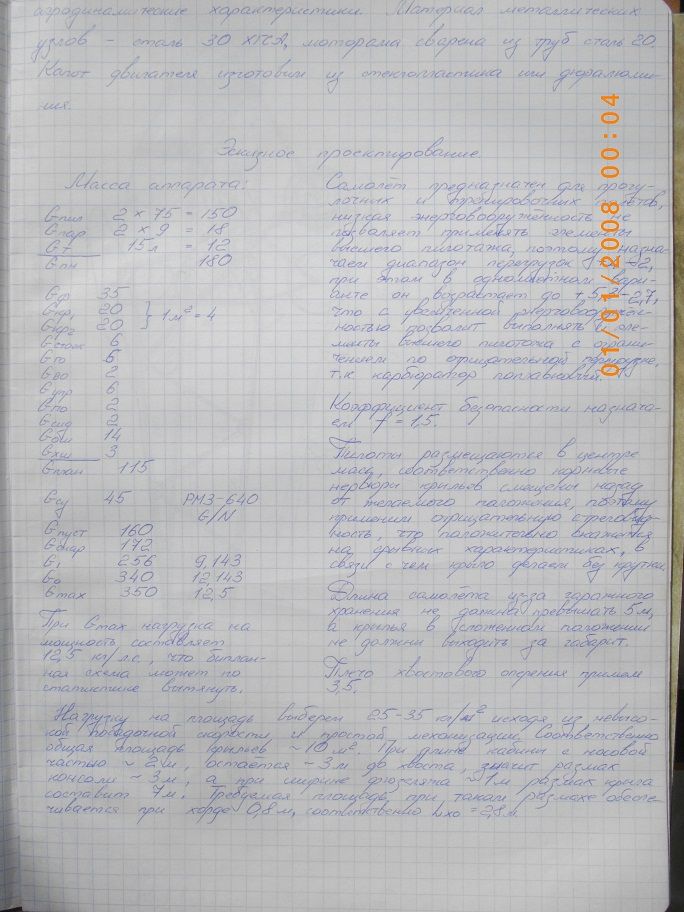 аэродинамические характеристики. Материал металлических
узлов – сталь 30 ХГСА, моторама сварена из труб сталь 20.
Капот двигателя изготовим из стеклопластика или дюралюми-
ния.
Эскизное проектирование.
Масса аппарата:
Gпил 2 × 75 = 150
Gпар 2 × 9 = 18
Gт 15л = 12
Gпн 180
Gф 35
Gкр1 20
Gкр2 20 } 1 м² = 4
Gстаж 6
Gго 6
Gво 2
Gупр 6
Gпо 2
Gсид 2
Gбш 14
Gхш 3
Gплан 115
Gсу 45 РМЗ-640
G/N
Gпуст 160
Gснар 172
G1 256 9,143
G0 340 12,143
Gmax 350 12,5
При Gmax нагрузка на
мощность составляет
12,5 кг/л.с., что биплан-
ная схема может по
статистике вытянуть.
Самолёт предназначен для прогу-
лочных и тренировочных полётов,
низкая энерговооруженность не
позволяет применять элементы
высшего пилотажа, поэтому назна-
чаем диапазон перегрузок
при этом в одноместном вари-
анте он возрастает до +5,3 -2,7,
что с увеличенной энерговооружен-
ностью позволит выполнять эле-
менты высшего пилотажа с ограни-
чением по отрицательной перегрузке,
т.к. карбюратор поплавковый.
Коэффициент безопасности назнача-
ем f = 1,5.
Пилоты размещаются в центре
масс, соответственно корневые
нервюры крыльев смещены назад
от желаемого положения, поэтому
применим отрицательную стреловид-
ность, что положительно скажется
на срывных характеристиках, в
связи с чем крыло делаем без крутки.
Длина самолёта из-за гаражного
хранения не должна превышать 5м,
а крылья в сложенном положении
не должны выходить за габарит.
Плечо хвостового оперения примем
3,5.
Нагрузку на площадь выберем 25-35 кг/м² исходя из невысо-
кой посадочной скорости и простой механизации. Соответственно
общая площадь крыльев ~10 м². При длине кабины с носовой
частью ~ 2м, остаётся ~3м до хвоста, значит размах
консоли ~ 3м, а при ширине фюзеляжа ~1м размах крыла
составит 7м. Требуемая площадь при таком размахе обеспе-
чивается при хорде 0,8м, соответственно Lхо = 2,8м.
01/01/2008 00:04